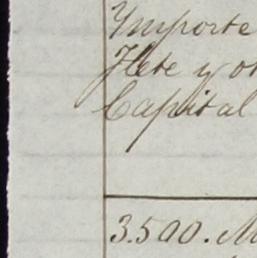 Importe
Flete y ot
Capital
3.500. M